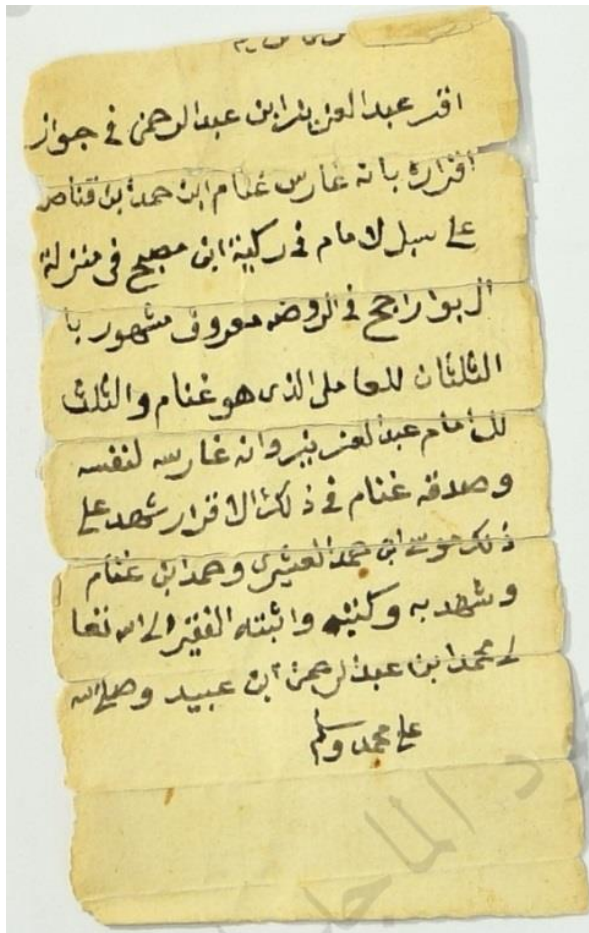 اقر عبدالعزيز ابن عبدالرحمن في جواز
اقراره بانه غارس غنام ابن حمد ابن قناص
على سبل الامام في ركية ابن مصبح في منزلة
ال بوراجح في الروضه معروف مشهور با
الثلثان للعامل الذي هو غنام والثلث
للامام عبدالعزيز وانه غارسه لنفسه
وصدقه غنام في ذلك الاقرار شهد على
ذلك موسى ابن حمد العشري وحمد ابن غنام
وشهد به وكتبه واثبته الفقير الى الله تعا
لى محمد ابن عبدالرحمن ابن عبيد وصلى الله
على محمد وسلم